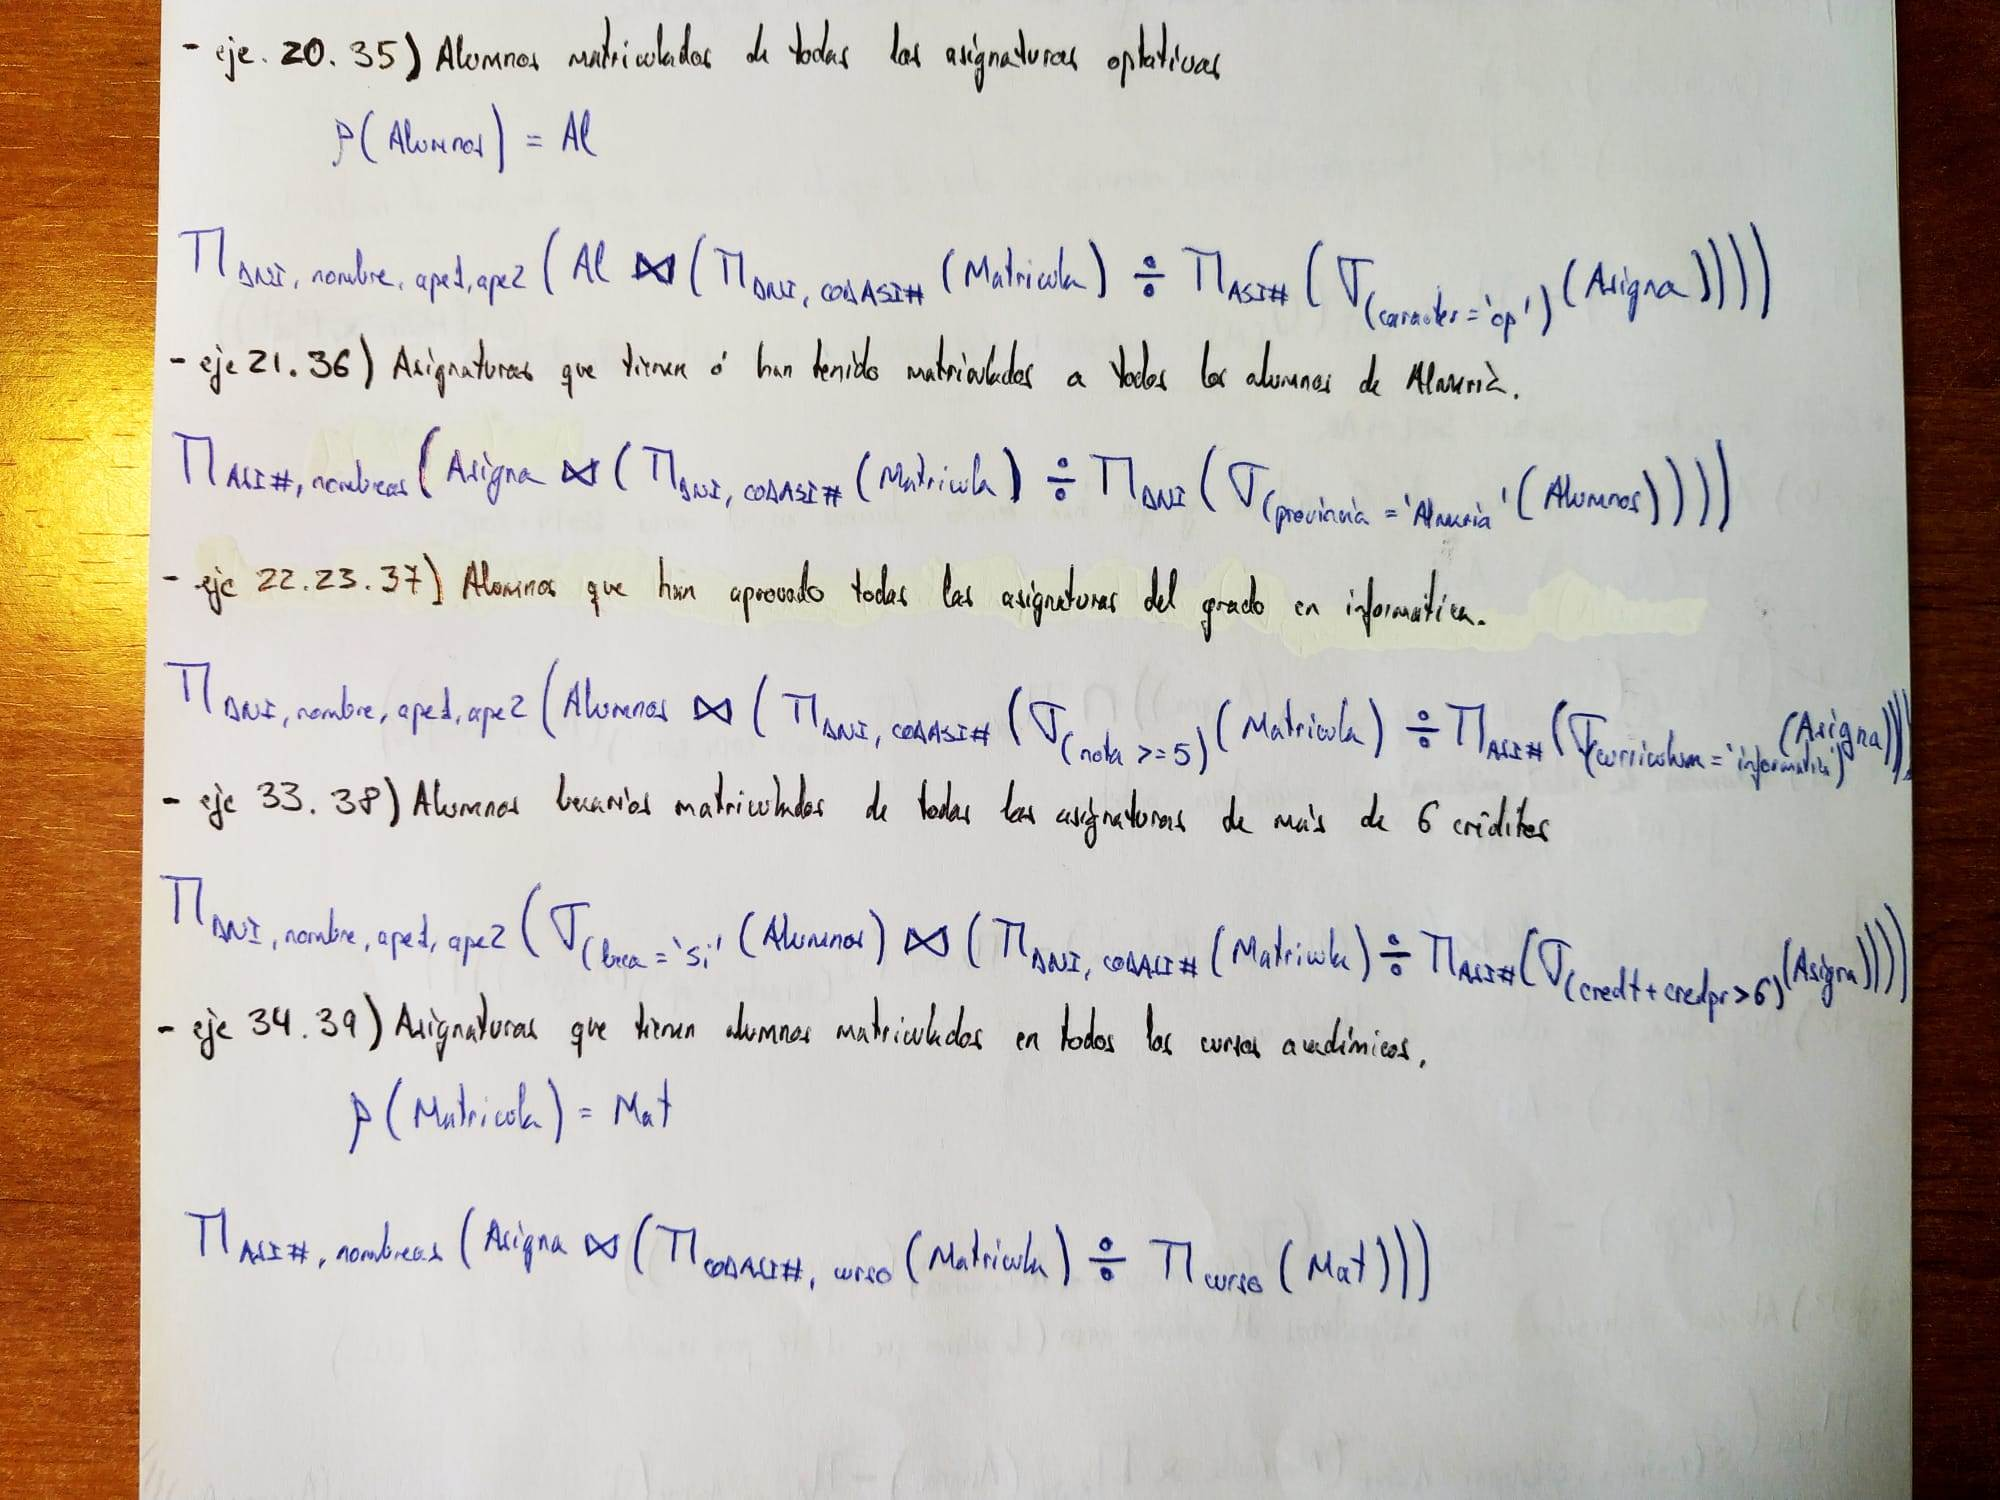 - eje. 20. 35) Alumnos matriculados de todas las asignaturas optativas
ρ(Alumnos) = Al
Π DNI, nombre, ape1, ape2 (Al ⋈ (Π DNI, CODASI# (Matricula) ÷ Π ASI# (σ (caracter='op') (Asigna))))
- eje 21. 36) Asignaturas que tienen ó han tenido matriculados a todos los alumnos de Almería.
Π ASI#, nombreas (Asigna ⋈ (Π DNI, CODASI# (Matricula) ÷ Π DNI (σ (provincia = 'Almería' (Alumnos))))
- eje 22. 23. 37) Alumnos que han aprovado todas las asignaturas del grado en informática.
Π DNI, nombre, ape1, ape2 (Alumnos ⋈ (Π DNI, CODASI# (σ (nota >= 5) (Matricula) ÷ Π ASI# (σ (curriculum = 'informatica') (Asigna))))
- eje 33. 38) Alumnos becarios matriculados de todas las asignaturas de más de 6 créditos
Π DNI, nombre, ape1, ape2 (σ (beca = 'si' (Alumnos) ⋈ (Π DNI, CODASI# (Matricula) ÷ Π ASI# (σ (credt + credpr > 6) (Asigna))))
- eje 34. 39) Asignaturas que tienen alumnos matriculados en todos los cursos académicos.
ρ (Matricula) = Mat
Π ASI#, nombreas (Asigna ⋈ (Π CODASI#, curso (Matricula) ÷ Π curso (Mat)))